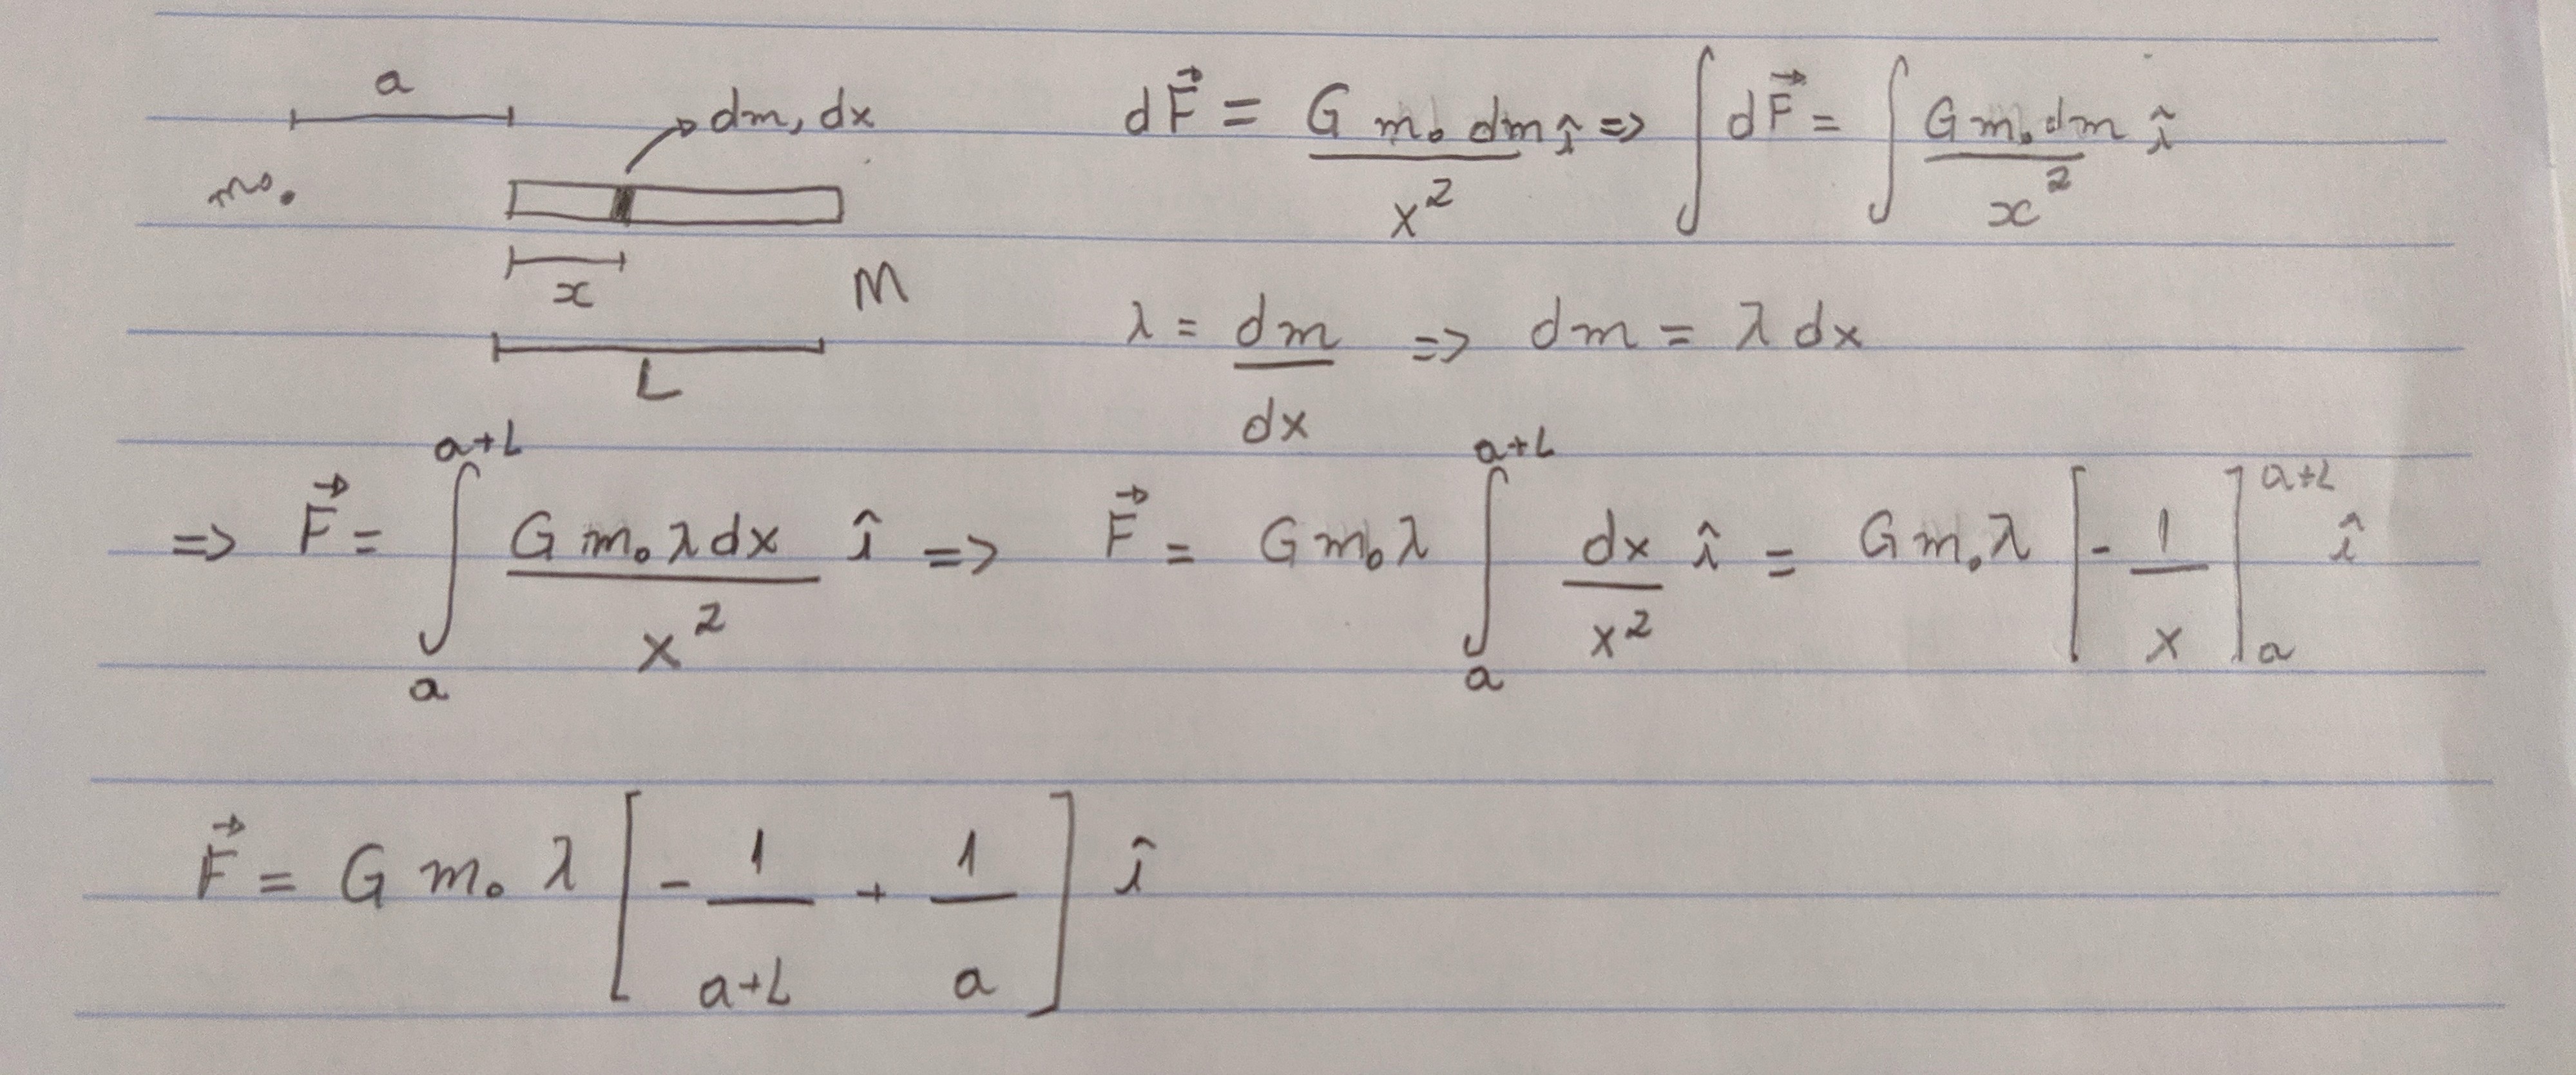 a
dm, dx
m₀
x
M
L
dF⃗ = G m₀ dm î / x² => ∫ dF⃗ = ∫ G m₀ dm î / x²
λ = dm / dx => dm = λ dx
=> F⃗ = ∫ₐᵃ⁺ᴸ G m₀ λ dx / x² î => F⃗ = G m₀ λ ∫ₐᵃ⁺ᴸ dx / x² î = G m₀ λ [ - 1 / x ]ₐᵃ⁺ᴸ î
F⃗ = G m₀ λ [ - 1 / a+L + 1 / a ] î